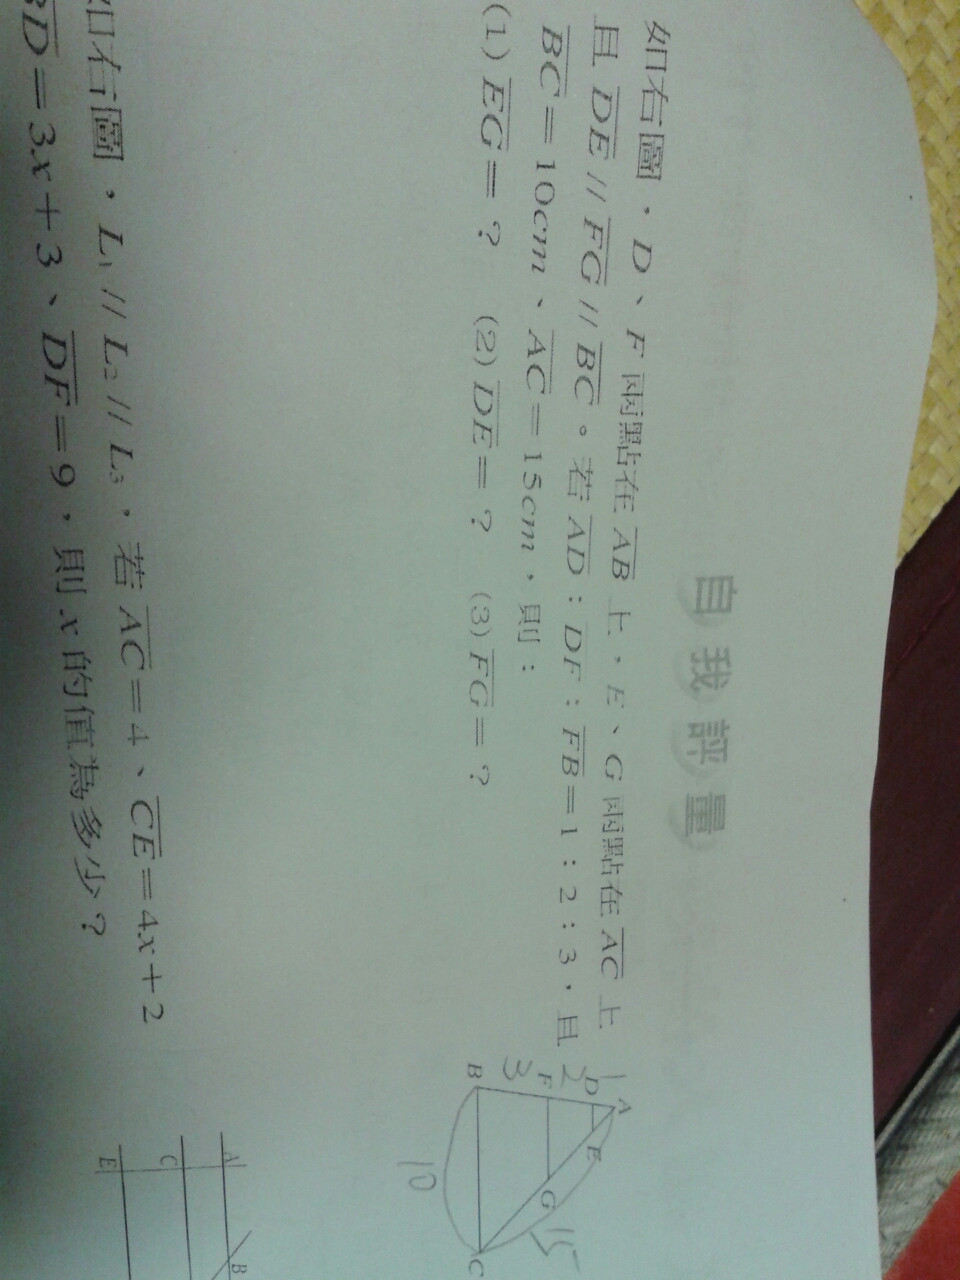 自我評量
如右圖，D、F 兩點在 AB 上，E、G 兩點在 AC 上
且 DE // FG // BC。若 AD：DF：FB＝1：2：3，且
BC＝10cm、AC＝15cm，則：
(1) EG＝？ (2) DE＝？ (3) FG＝？
A
D
E
F
G
B
C
1
2
3
15
10
如右圖，L1 // L2 // L3，若 AC＝4、CE＝4x＋2
BD＝3x＋3、DF＝9，則 x 的值為多少？
A
B
C
E